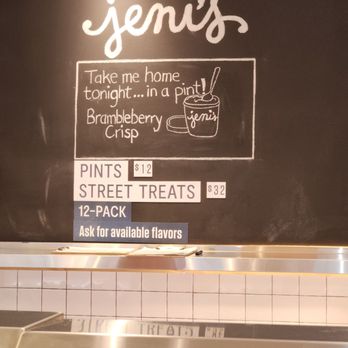 jeni's
Take me home
tonight...in a pint!
Brambleberry
Crisp
jeni's
PINTS $12
STREET TREATS $32
12-PACK
Ask for available flavors
STREET TREATS